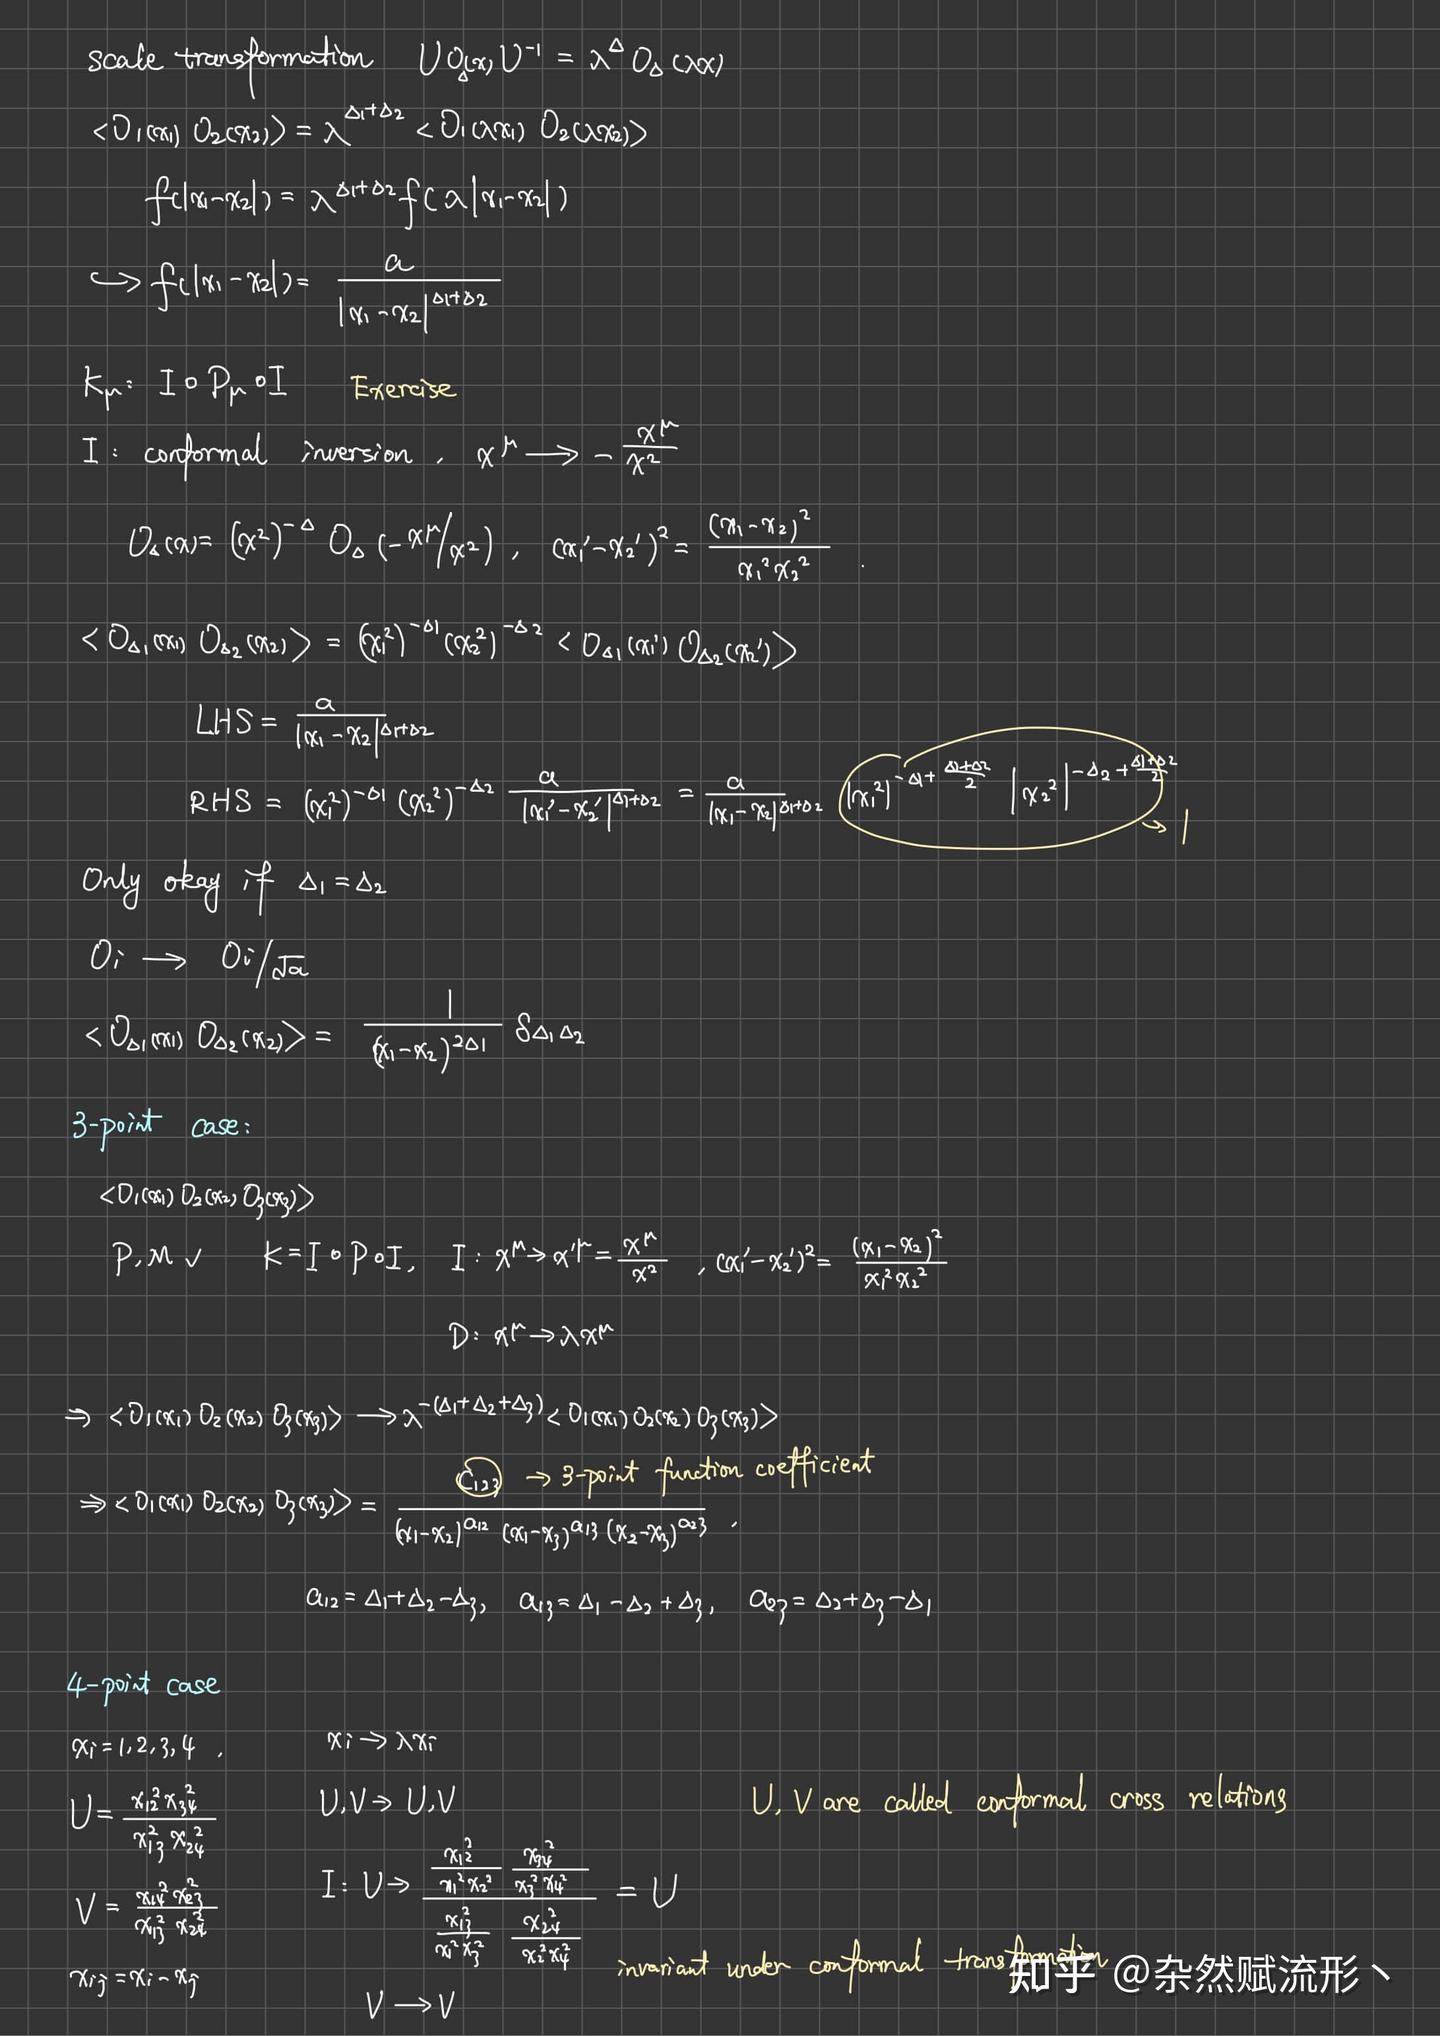 scale transformation U O_Δ(x) U⁻¹ = λ^Δ O_Δ(λx)
<O₁(x₁) O₂(x₂)> = λ^(Δ₁+Δ₂) <O₁(λx₁) O₂(λx₂)>
f(|x₁-x₂|) = λ^(Δ₁+Δ₂) f(λ|x₁-x₂|)
↪ f(|x₁-x₂|) = a / |x₁-x₂|^(Δ₁+Δ₂)
K_μ: I∘P_μ∘I Exercise
I: conformal inversion, x^μ → -x^μ/x²
O_Δ(x) = (x²)^(-Δ) O_Δ(-x^μ/x²), (x₁'-x₂')² = (x₁-x₂)² / x₁²x₂² .
<O_Δ1(x₁) O_Δ2(x₂)> = (x₁²)^(-Δ1) (x₂²)^(-Δ2) <O_Δ1(x₁') O_Δ2(x₂')>
LHS = a / |x₁-x₂|^(Δ1+Δ2)
RHS = (x₁²)^(-Δ1) (x₂²)^(-Δ2) a / |x₁'-x₂'|^(Δ1+Δ2) = a / |x₁-x₂|^(Δ1+Δ2) |x₁²|^(-Δ1+(Δ1+Δ2)/2) |x₂²|^(-Δ2+(Δ1+Δ2)/2) → 1
Only okay if Δ₁=Δ₂
Oi → Oi/√a
<O_Δ1(x₁) O_Δ2(x₂)> = 1 / (x₁-x₂)^(2Δ1) δ_Δ1Δ2
3-point case:
<O₁(x₁) O₂(x₂) O₃(x₃)>
P, M ✓ K=I∘P∘I, I: x^μ→x'^μ = x^μ/x², (x₁'-x₂')² = (x₁-x₂)² / x₁²x₂²
D: x^μ→λx^μ
⇒ <O₁(x₁) O₂(x₂) O₃(x₃)> → λ^(-(Δ₁+Δ₂+Δ₃)) <O₁(x₁) O₂(x₂) O₃(x₃)>
⇒ <O₁(x₁) O₂(x₂) O₃(x₃)> = C₁₂₃ / (x₁-x₂)^a₁₂ (x₁-x₃)^a₁₃ (x₂-x₃)^a₂₃ , → 3-point function coefficient
a₁₂ = Δ₁+Δ₂-Δ₃, a₁₃ = Δ₁-Δ₂+Δ₃, a₂₃ = Δ₂+Δ₃-Δ₁
4-point case
xi = 1,2,3,4 , xi → λxi
U = x₁₂² x₃₄² / x₁₃² x₂₄² U,V → U,V U, V are called conformal cross relations
V = x₁₄² x₂₃² / x₁₃² x₂₄² I: U → (x₁₂²/x₁²x₂² x₃₄²/x₃²x₄²) / (x₁₃²/x₁²x₃² x₂₄²/x₂²x₄²) = U
invariant under conformal transformation
xij = xi - xj V → V
知乎 @杂然赋流形丶